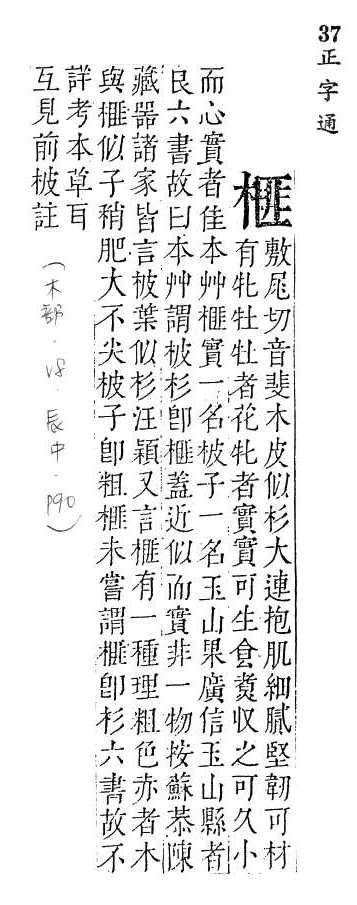 37
正字通
榧
敷尾切音斐木皮似杉大連抱肌細膩堅韌可材
有牝牡牡者花牝者實實可生食煑収之可久小
而心實者佳本艸榧實一名柀子一名玉山果廣信玉山縣者
良六書故曰本艸謂柀杉卽榧蓋近似而實非一物按蘇恭陳
藏器諸家皆言柀葉似杉汪穎又言榧有一種理粗色赤者木
與榧似子稍肥大不尖柀子卽粗榧未嘗謂榧卽杉六書故不
詳考本草耳
互見前柀註
(木部.18.辰中.P90)